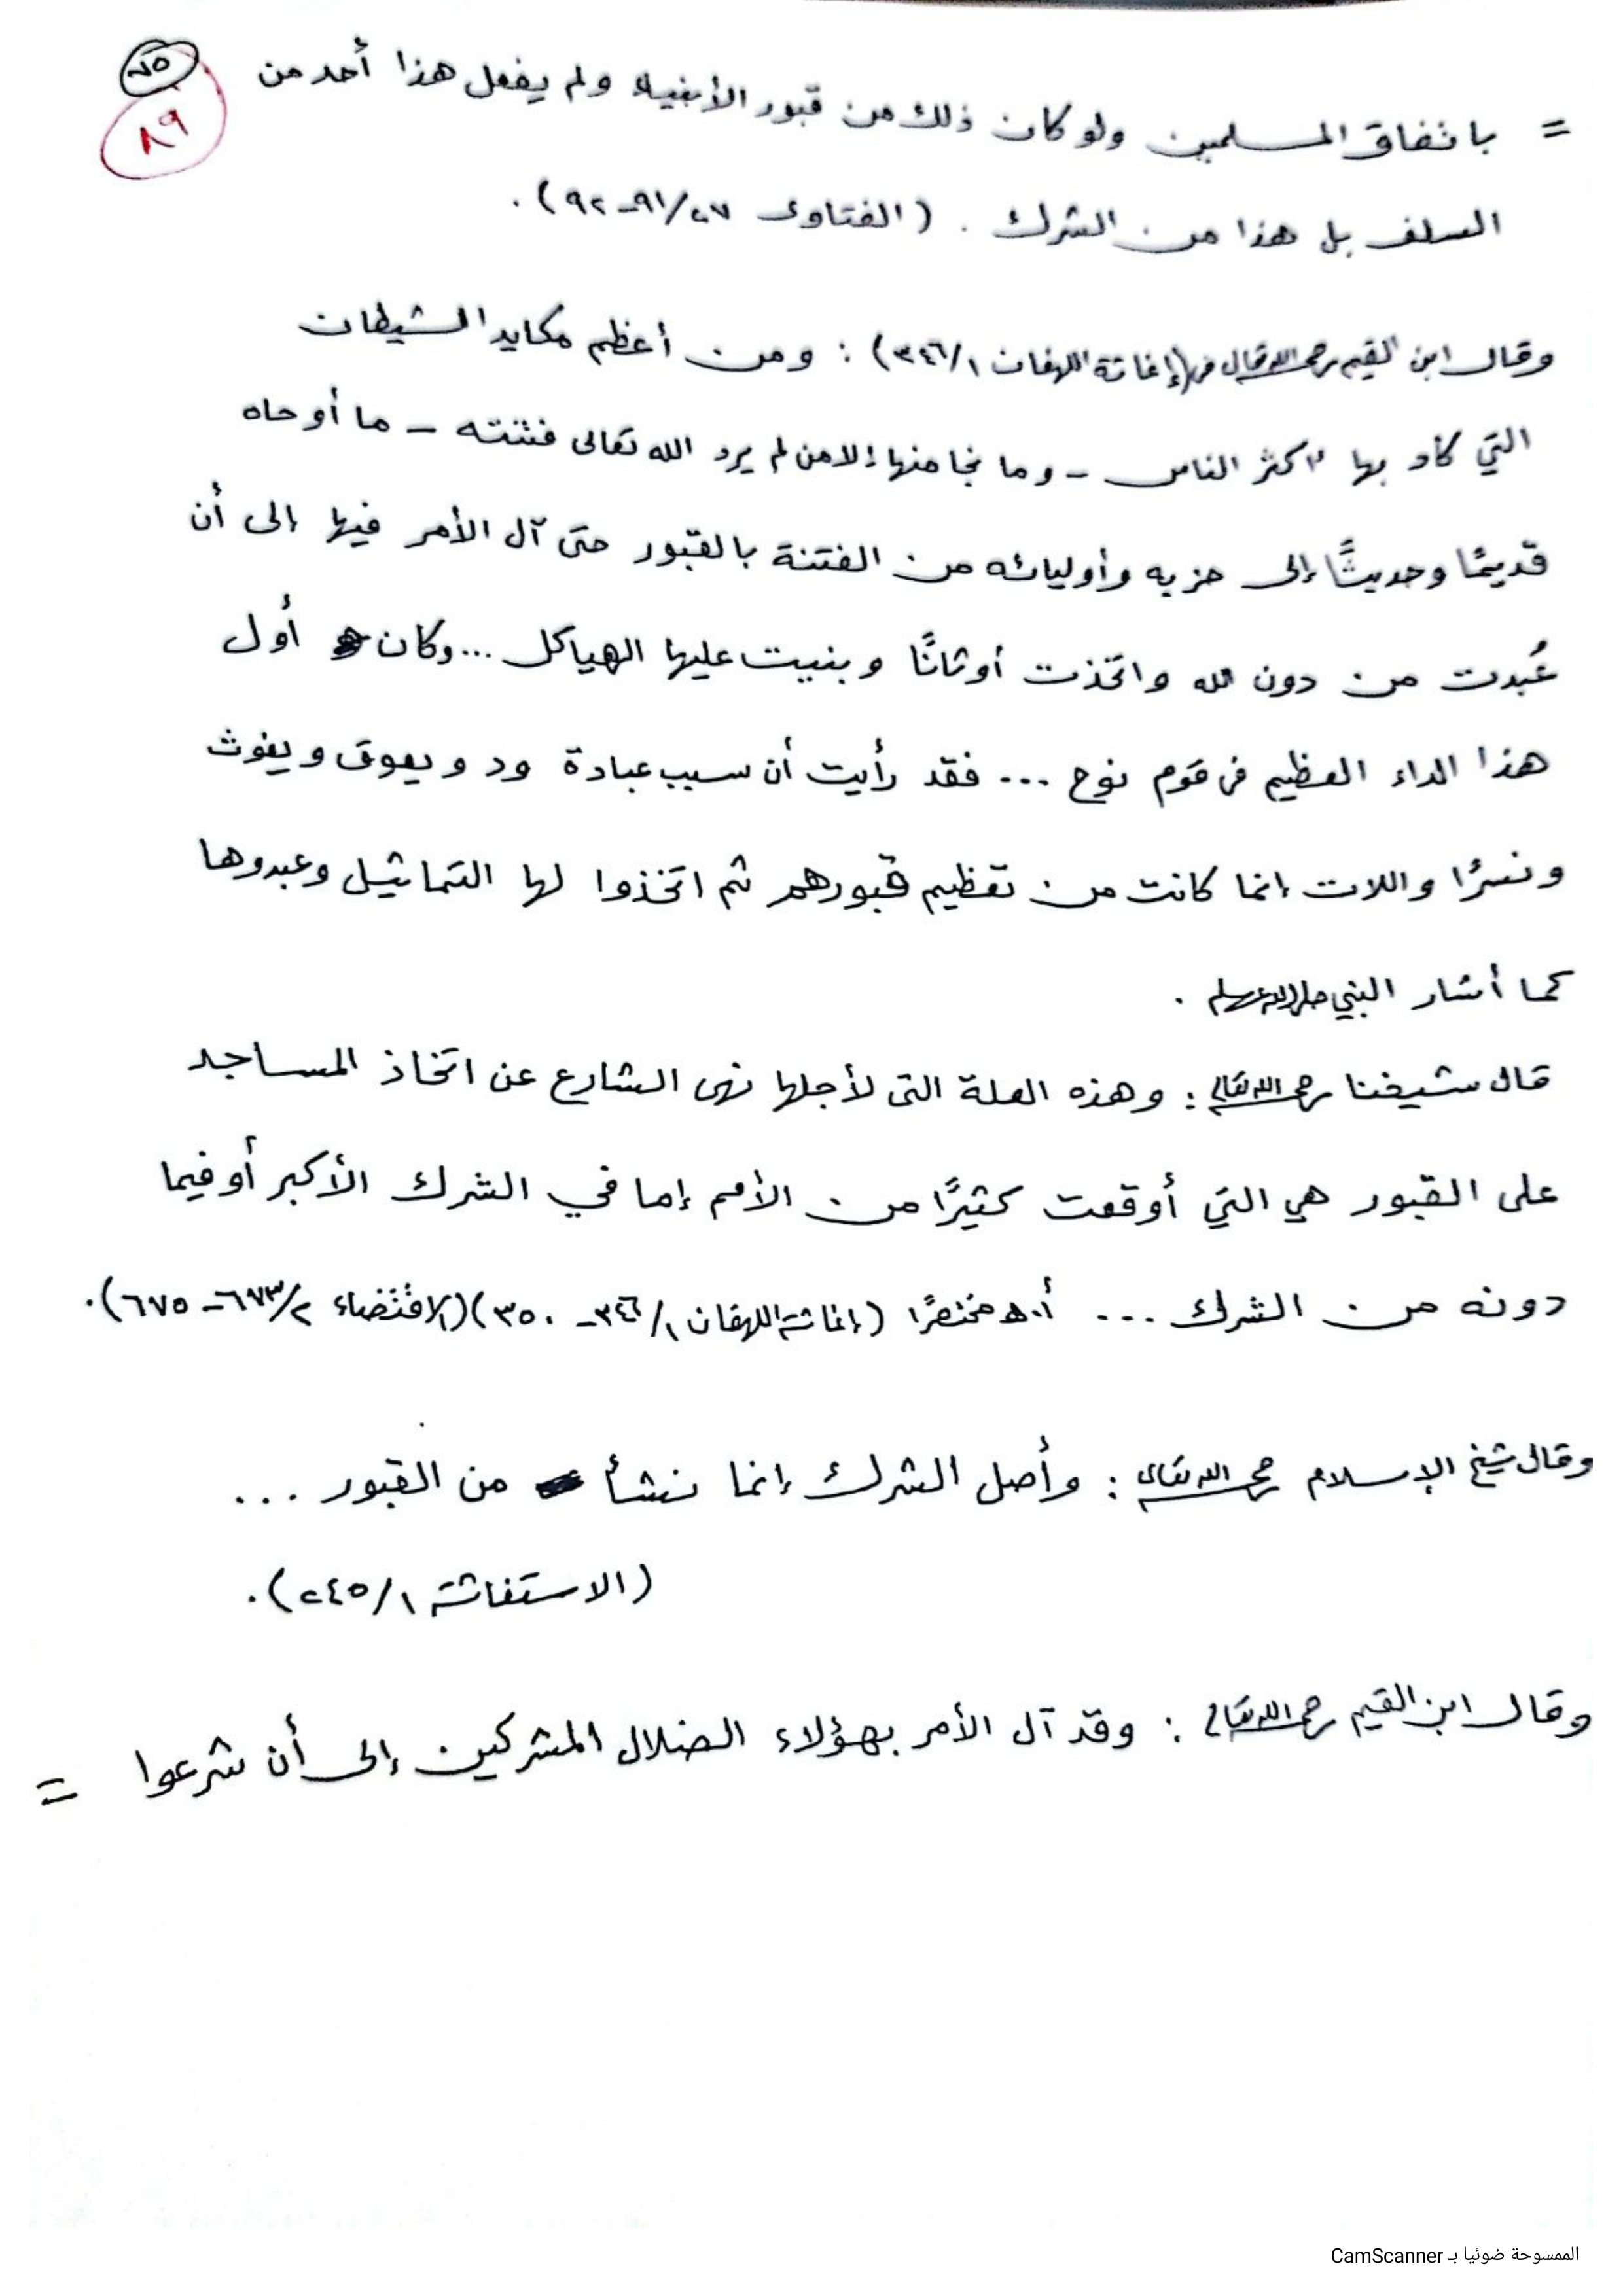 ٧٥
٨٩
= باتفاق المسلمين ولو كان ذلك من قبور الأنبياء ولم يفعل هذا أحد من
السلف بل هذا من الشرك . (الفتاوى ٢٧/ ٩١-٩٢) .
وقال ابن القيم رحمه الله تعالى في (إغاثة اللهفان ١/ ٣٤٦) : ومن أعظم مكايد الشيطان
التي كاد بها أكثر الناس - وما نجا منها إلا من لم يرد الله تعالى فتنته - ما أوحاه
قديمًا وحديثًا إلى حزبه وأوليائه من الفتنة بالقبور حتى آل الأمر فيها إلى أن
عُبدت من دون الله واتخذت أوثانًا وبنيت عليها الهياكل ... وكان أول
هذا الداء العظيم في قوم نوح ... فقد رأيت أن سبب عبادة ود ويعوق ويغوث
ونسرًا واللات إنما كانت من تعظيم قبورهم ثم اتخذوا لها التماثيل وعبدوها
كما أشار النبي صلى الله عليه وسلم .
قال شيخنا رحمه الله تعالى : وهذه العلة التى لأجلها نهى الشارع عن اتخاذ المساجد
على القبور هي التي أوقعت كثيرًا من الأمم إما في الشرك الأكبر أو فيما
دونه من الشرك ... أ.هـ مختصرًا (إغاثة اللهفان ١/ ٣٤٦- ٣٥٠) (الاقتضاء ٢/ ٦٧٣- ٦٧٥).
وقال شيخ الإسلام رحمه الله تعالى : وأصل الشرك إنما نشأ من القبور ...
(الاستغاثة ١/ ٢٤٥).
وقال ابن القيم رحمه الله تعالى : وقد آل الأمر بهؤلاء الضلال المشركين إلى أن شرعوا =
الممسوحة ضوئيا بـ CamScanner